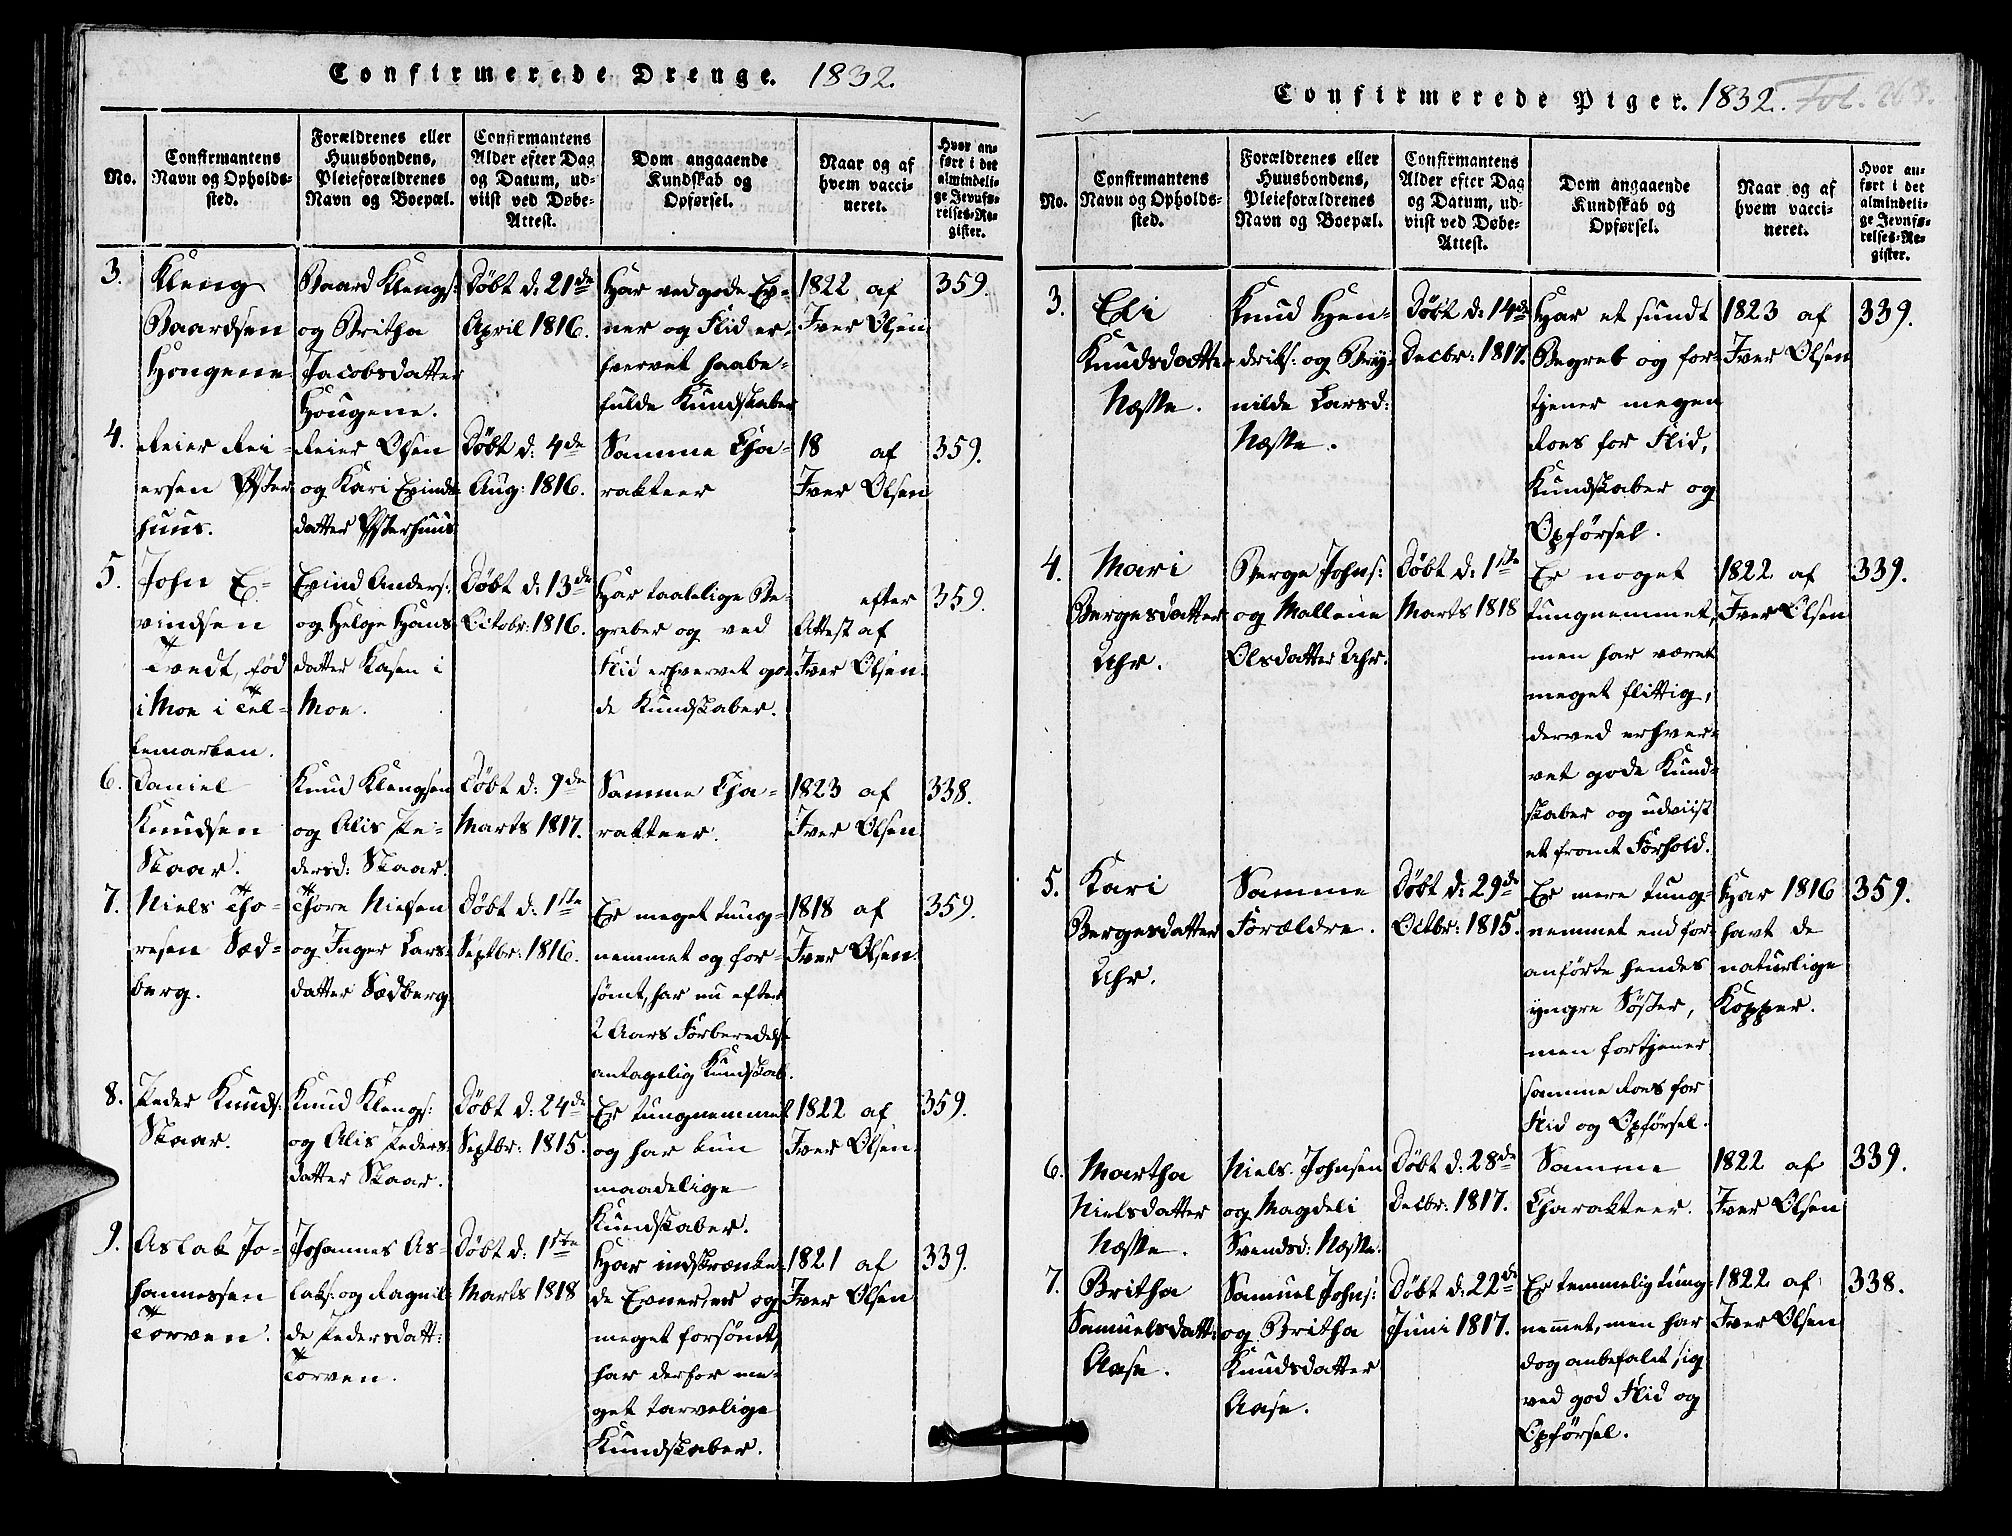 Confirmerede Drenge. 1832.
No.
Confirmantens
Navn og Opholds-
sted.
Forældrenes eller
Huusbondens,
Pleieforældrenes
Navn og Boepæl.
Confirmantens
Alder efter Dag
og Datum, ud-
viist ved Døbe-
Attest.
Dom angaaende
Kundskab og
Opførsel.
Naar og af
hvem vacci-
neret.
Hvor an-
ført i det
almindeli-
ge Jevnfø-
relses-Re-
gister.
3.
Kleng
Baardsen
Hougene
Baard Klengs:
og Britha
Jacobsdatter
Hougene.
Døbt d: 21de
April 1816.
Har ved gode Ev-
ner og Flid er-
hvervet haabe-
fulde Kundskaber
1822 af
Iver Olsen
359.
4.
Reier Rei-
ersen Yster
huus.
Reier Olsen
og Kari Evinds
datter Ysterhuus
Døbt d: 4de
Aug: 1816.
Samme Cha-
rakteer
18 af
Iver Olsen
359.
5.
John E-
vindsen
Tændt, fød
i Moe i Tel-
lemarken.
Evind Anders:
og Helge Hans
datter Kasen i
Moe.
Døbt d: 13de
Octobr: 1816.
Har taalelige Be-
greber og ved
Flid erhvervet go-
de Kundskaber.
efter
Attest af
Iver Olsen.
359.
6.
Daniel
Knudsen
Skaar.
Knud Klengsen
og Alis Pe-
dersd: Skaar.
Døbt d: 9de
Marts 1817.
Samme Cha-
rakteer.
1823 af
Iver Olsen
338.
7.
Niels Tho-
resen Sæd-
berg.
Thore Nielsen
og Inger Lars-
datter Sædberg
Døbt d: 1ste
Septbr: 1816.
Er meget tung-
nemmet og for-
sømt, har nu efter
2 Aars Forberedelse
antagelig Kundskab.
1818 af
Iver Olsen.
359.
8.
Peder Knuds:
Skaar.
Knud Klengs:
og Alis Peders
datter Skaar.
Døbt d: 24de
Septbr: 1815.
Er tungnemmet
og har kun
maadelige
Kundskaber.
1822 af
Iver Olsen.
359.
9.
Aslak Jo-
hannessen
Torven.
Johannes As-
laks: og Ragnil-
de Pedersdatt:
Torven.
Døbt d: 1ste
Marts 1818
Har indskrænke-
de Evner og
meget forsømt,
har derfor me-
get tarvelige
Kundskaber.
1821 af
Iver Olsen
339.
Confirmerede Piger. 1832. Fol. 268.
No.
Confirmantens
Navn og Opholds-
sted.
Forældrenes eller
Huusbondens,
Pleieforældrenes
Navn og Boepæl.
Confirmantens
Alder efter Dag
og Datum, ud-
viist ved Døbe-
Attest.
Dom angaaende
Kundskab og
Opførsel.
Naar og af
hvem vacci-
neret.
Hvor an-
ført i det
almindeli-
ge Jevnfø-
relses-Re-
gister.
3.
Eli
Knudsdatter
Næsse.
Knud Hen-
driks: og Bry-
nilde Larsd:
Næsse.
Døbt d: 14de
Decbr: 1817.
Har et sundt
Begreb og for-
tjener megen
Roes for Flid,
Kundskaber og
Opførsel.
1823 af
Iver Olsen
339.
4.
Mari
Bergesdatter
Uhr.
Berge Johns:
og Mallene
Olsdatter Uhr.
Døbt d: 1ste
Marts 1818
Er noget
tungnemmet,
men har været
meget flittig,
derved erhver-
vet gode Kund-
skaber og udviist
et fromt Forhold.
1822 af
Iver Olsen
339.
5.
Kari
Bergesdatter
Uhr.
Samme
Forældre.
Døbt d: 29de
Octbr: 1815.
Er mere tung-
nemmet end for-
anførte hendes
yngre Søster,
men fortjener
samme Roes for
Flid og Opførsel.
Har 1816
havt de
naturlige
Kopper.
359.
6.
Martha
Nielsdatter
Næsse.
Niels Johnsen
og Magdeli
Svendsd: Næsse.
Døbt d: 28de
Decbr: 1817.
Samme
Charakteer.
1822 af
Iver Olsen
339.
7.
Britha
Samuelsdatt:
Aase.
Samuel Johns:
og Britha
Knudsdatter
Aase.
Døbt d: 22de
Juni 1817.
Er temmelig tung-
nemmet, men har
dog anbefalet sig
ved god Flid og
Opførsel.
1822 af
Iver Olsen
338.